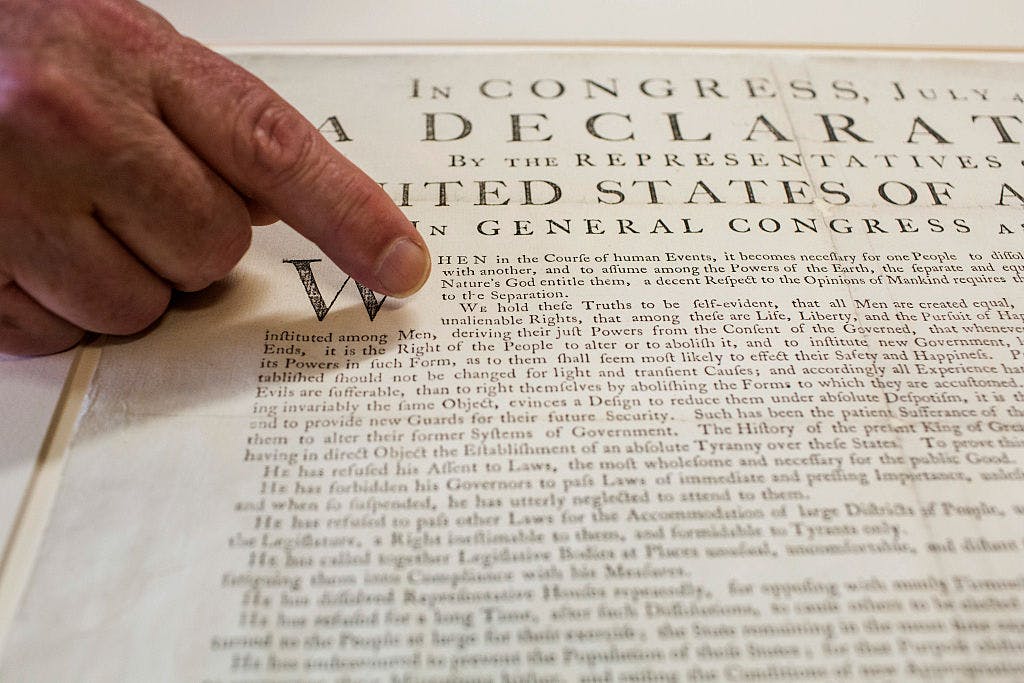 IN CONGRESS, JULY 4
A DECLARAT
BY THE REPRESENTATIVES O
NITED STATES OF A
IN GENERAL CONGRESS AS
WHEN in the Courſe of human Events, it becomes neceſſary for one People to diſſol
with another, and to aſſume among the Powers of the Earth, the ſeparate and equ
Nature's God entitle them, a decent Reſpect to the Opinions of Mankind requires th
to the Separation.
WE hold theſe Truths to be ſelf-evident, that all Men are created equal,
unalienable Rights, that among theſe are Life, Liberty, and the Purſuit of Hap
inſtituted among Men, deriving their juſt Powers from the Conſent of the Governed, that whenever
Ends, it is the Right of the People to alter or to aboliſh it, and to inſtitute new Government, l
its Powers in ſuch Form, as to them ſhall ſeem moſt likely to effect their Safety and Happineſs. P
tabliſhed ſhould not be changed for light and tranſient Cauſes; and accordingly all Experience hat
Evils are ſufferable, than to right themſelves by aboliſhing the Forms to which they are accuſtomed.
ing invariably the ſame Object, evinces a Deſign to reduce them under abſolute Deſpotiſm, it is th
and to provide new Guards for their future Security. Such has been the patient Sufferance of the
them to alter their former Syſtems of Government. The Hiſtory of the preſent King of Grea
having in direct Object the Eſtabliſhment of an abſolute Tyranny over theſe States. To prove this
HE has refuſed his Aſſent to Laws, the moſt wholeſome and neceſſary for the public Good.
HE has forbidden his Governors to paſs Laws of immediate and preſſing Importance, unleſ
and when ſo ſuſpended, he has utterly neglected to attend to them.
HE has refuſed to paſs other Laws for the Accommodation of large Diſtricts of People,
the Legiſlature, a Right ineſtimable to them, and formidable to Tyrants only.
HE has called together Legiſlative Bodies at Places unuſual, uncomfortable, and diſtant
fatiguing them into Compliance with his Meaſures.
HE has diſſolved Repreſentative Houſes repeatedly, for oppoſing with manly Firmneſ
HE has refuſed for a long Time, after ſuch Diſſolutions, to cauſe others to be elected
turned to the People at large for their exerciſe; the State remaining in the mean time
HE has endeavoured to prevent the Population of theſe States; for that Purpoſe